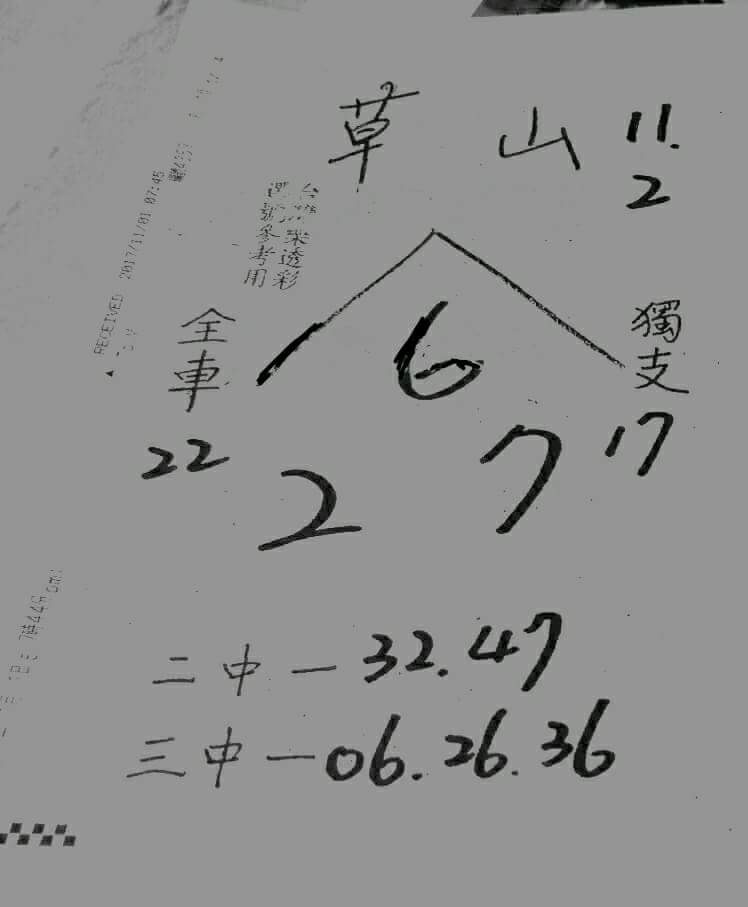 草山 11.
2
台灣樂透彩
選號參考用
RECEIVED 2017/11/01 07:45
全車
獨支
6
22
17
2 7
二中－32.47
三中－06.26.36